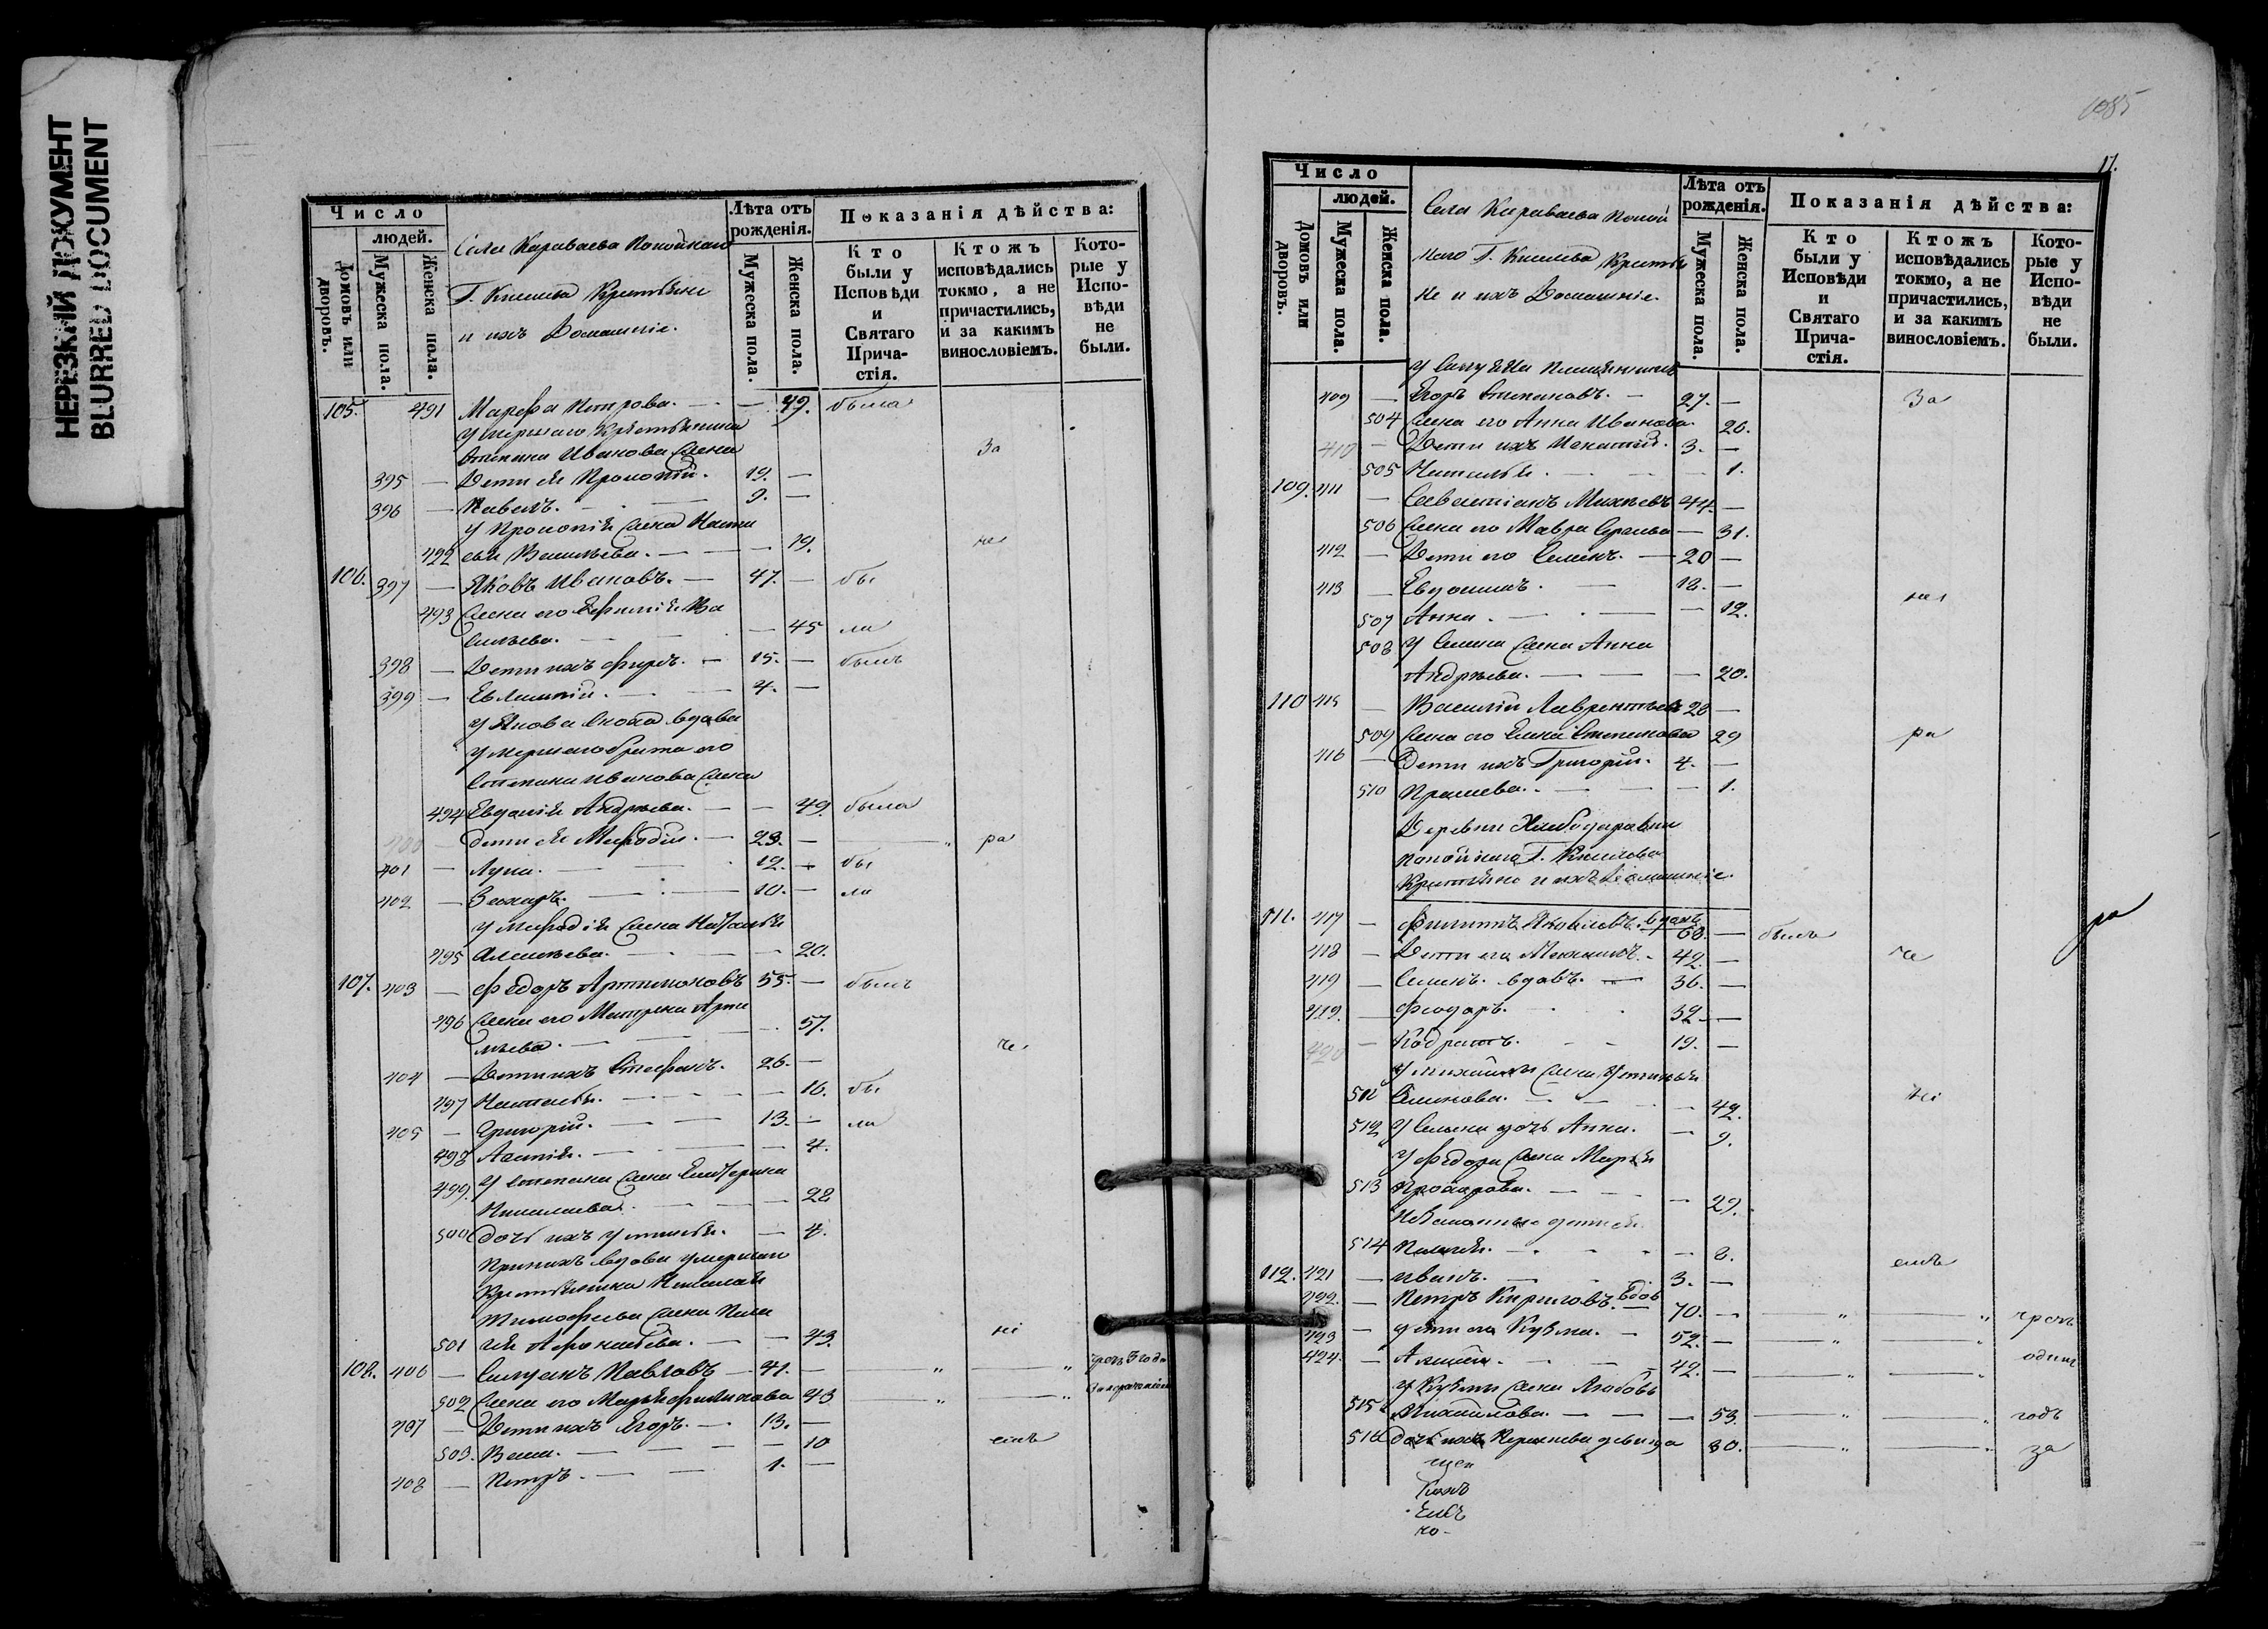 НЕРЕЗКИЙ ДОКУМЕНТ
BLURRED DOCUMENT
Число
людей.
Домовъ или дворовъ.
Мужеска пола.
Женска пола.
Села Караваева Покойнаго
Г. Киселева Крестьяне
и ихъ Домашніе.
Лѣта отъ рожденія.
Мужеска пола.
Женска пола.
Показанія дѣйства:
Кто были у Исповѣди и Святаго Прича-стія.
Ктожъ исповѣдались токмо, а не причастились, и за какимъ винословіемъ.
Кото-рые у Испо-вѣди не были.
105. 491 Марфа Петрова. — — 49. была
умершаго Крестьянина
Степана Иванова Жена За
395 — Дети ея Прокопій. 19. —
396 — Павелъ. — 9. —
у Прокопія Жена Наста
492 сья Васильева. — — 19. не
106. 397 — Яковъ Ивановъ. — 47. — бы
493 Жена его Ефимія Ва
сильева. — — 45 ли
398 — Дети ихъ Фиръ. — 15. — былъ
399 — Евлампій. — 4. —
у Якова сноха вдова
умершаго брата его
Степана Иванова Жена
494 Евдокія Андреева. — — 49. была
400 — дети ея Мефодій. — 23. — — „ ра
401 — Лука. — 12. — бы
402 — Захаръ. — 10. — ли
у Мефодія Жена Наталья
495 Алексеева. — — 20.
107. 403 — Федоръ Артамоновъ 55. — былъ
496 Жена его Матрена Арте
мьева. — — 57.
че
404 — Дети ихъ Стефанъ. 26. —
497 Наталья. — — 16. бы
405 — Григорій. — 13. — ли
498 Аксинія. — — 4.
499. у Степана Жена Екатерина
Николаева. — — 28
500 дочь ихъ Устинья. — 4.
При нихъ вдова умершаго
Крестьянина Николая
Тимофеева Жена Пела
501 гея Афонасьева. — — 43. ні
108. 406 — Симеонъ Павловъ — 41. — — „ — „ чрезъ 3 года
502 Жена его Марья Филипова 43 — „ — „
407 — Дети ихъ Егоръ. — 13. —
503. Васа. — — 10 емъ
408 — Петръ. — 1. —
1085
17.
Число
людей.
Домовъ или дворовъ.
Мужеска пола.
Женска пола.
Села Караваева Покой
наго Г. Киселева Крестья
не и ихъ Домашніе.
Лѣта отъ рожденія.
Мужеска пола.
Женска пола.
Показанія дѣйства:
Кто были у Исповѣди и Святаго Прича-стія.
Ктожъ исповѣдались токмо, а не причастились, и за какимъ винословіемъ.
Кото-рые у Испо-вѣди не были.
у Симеона племянникъ
409 — Егоръ Степановъ. — 27. — За
504 Жена его Анна Иванова. 26.
410 — Дети ихъ Игнатій. 3. —
505 Наталья. — — 1.
109. 411 — Севастіанъ Михеевъ 44. —
506 Жена его Мавра — 31.
412 — Дети его Семенъ. — 20 —
413 — Евдокимъ. — 18. — не
507 Анна. — — 12.
508 у Семена Жена Анна
Андреева. — — 20.
110 415 — Василій Лаврентьевъ 28 —
509 Жена его Елена Степанова 29 ра
416 — Дети ихъ Григорій. 4. —
510 — — 1.
Деревни
покойнаго Г. Киселева
Крестьяне и ихъ Домашніе.
111. 417 — Филиппъ Яковлевъ. вдовъ 68. — былъ
ра
418 — Дети его Михаилъ. — 42. — че
419 — Семенъ. вдовъ. — 36. —
419. — Феодоръ. 32. —
420 — Кодратъ. — 19. —
у Михаила Жена Устинья
511 Семенова. — — 42. ні
512 у Семена дочь Анна. — 9.
у Федора Жена Марья
513 Прохорова. — — 29.
514 Пелагея. — — 8. емъ
112. 421 — Иванъ. 3. —
422. — Петръ Кириловъ. вдов 70. — — „ — „ чрезъ
423 — дети его Кузма. — 52. — — „ — „
424. — Алексей. — 42. — — „ — „ одинъ
у Кузмы Жена Любовь
515 Михайлова. — — 53. — „ — „ годъ
516 дочь ихъ девица 30. — „ — „ за